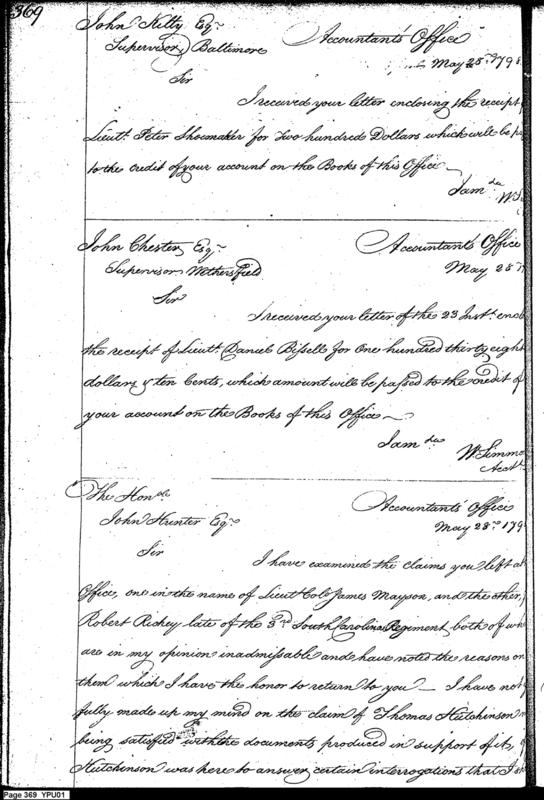 369
John Kilty Esqr.
Supervisor, Baltimore
Accountant's Office
May 25th, 179
Sir
I received your letter enclosing the receipt
Lieutt. Peter Shoemaker for Two hundred Dollars which will be
to the credit of your account on the Books of this Office
I am &ca
John Chester, Esqr.
Supervisor Wethersfield
Accountant's Office
May 25
Sir
I received your letter of the 23 Instt. encl
the receipt of Lieutt. Daniel Bissell for One hundred thirty eight
dollars & ten Cents, which amount will be passed to the credit of
your account on the Books of this Office
I am &ca
Wm Simmo
Acctt.
The Honble
John Hunter Esqr.
Accountant's Office
May 28th 179
Sir
I have examined the claims you left at
Office, one in the name of Lieut Colo James Mayson, and the other,
Robert Richey late of the 3rd South Carolina Regiment both of wh
are in my opinion inadmissable and have noted the reasons on
them which I have the honor to return to you — I have not
fully made up my mind on the claim of Thomas Hutchinson n
being satisfied with the documents produced in support of it,
Hutchinson was here to answer certain interrogations that I sh
Page 369 YPU01